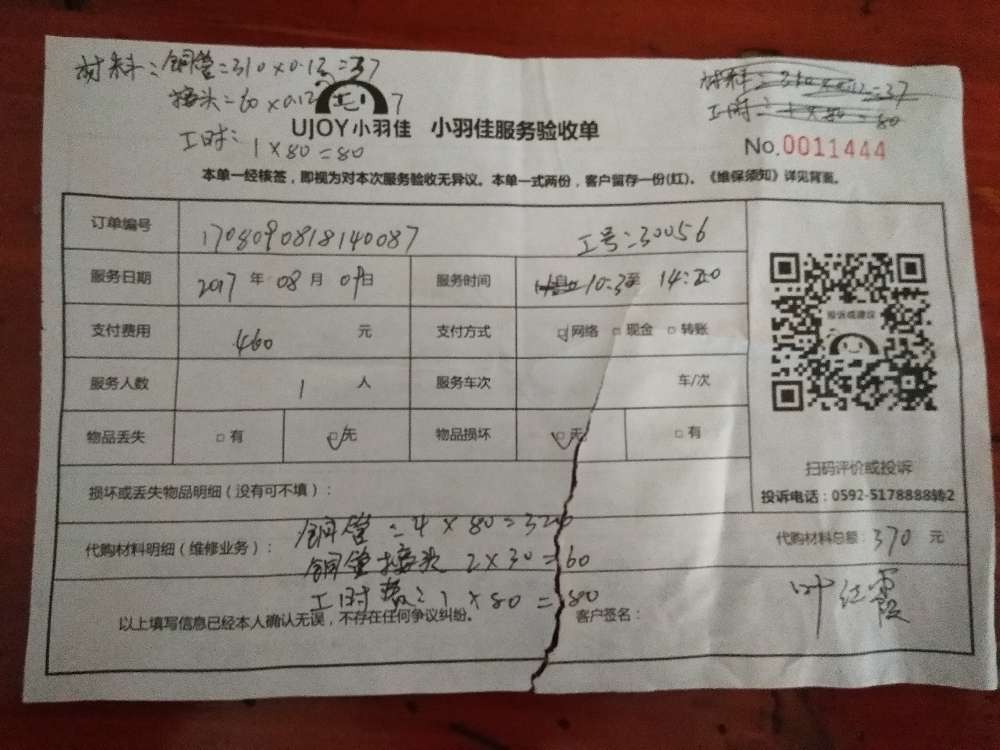 材料：铜管=310×0.12=37
接头=60×0.12 7
工时：1×80=80
材料：310×0.12=37
工时：1×80=80
UJOY小羽佳 小羽佳服务验收单
No.0011444
本单一经核签，即视为对本次服务验收无异议。本单一式两份，客户留存一份(红)。《维保须知》详见背面。
订单编号 1708090818140087 工号：30056
服务日期 2017 年 08 月 09 日 服务时间 10:3 至 14:20
支付费用 460 元 支付方式 ☑网络 □现金 □转账
服务人数 1 人 服务车次 车/次
物品丢失 □有 ☑无 物品损坏 ☑无 □有
投诉或建议
扫码评价或投诉
投诉电话：0592-5178888转2
损坏或丢失物品明细（没有可不填）：
代购材料明细（维修业务）：
铜管：4×80=320
铜管接头 2×30=60
工时费：1×80=80
代购材料总额：370 元
以上填写信息已经本人确认无误，不存在任何争议纠纷。 客户签名：叶红霞